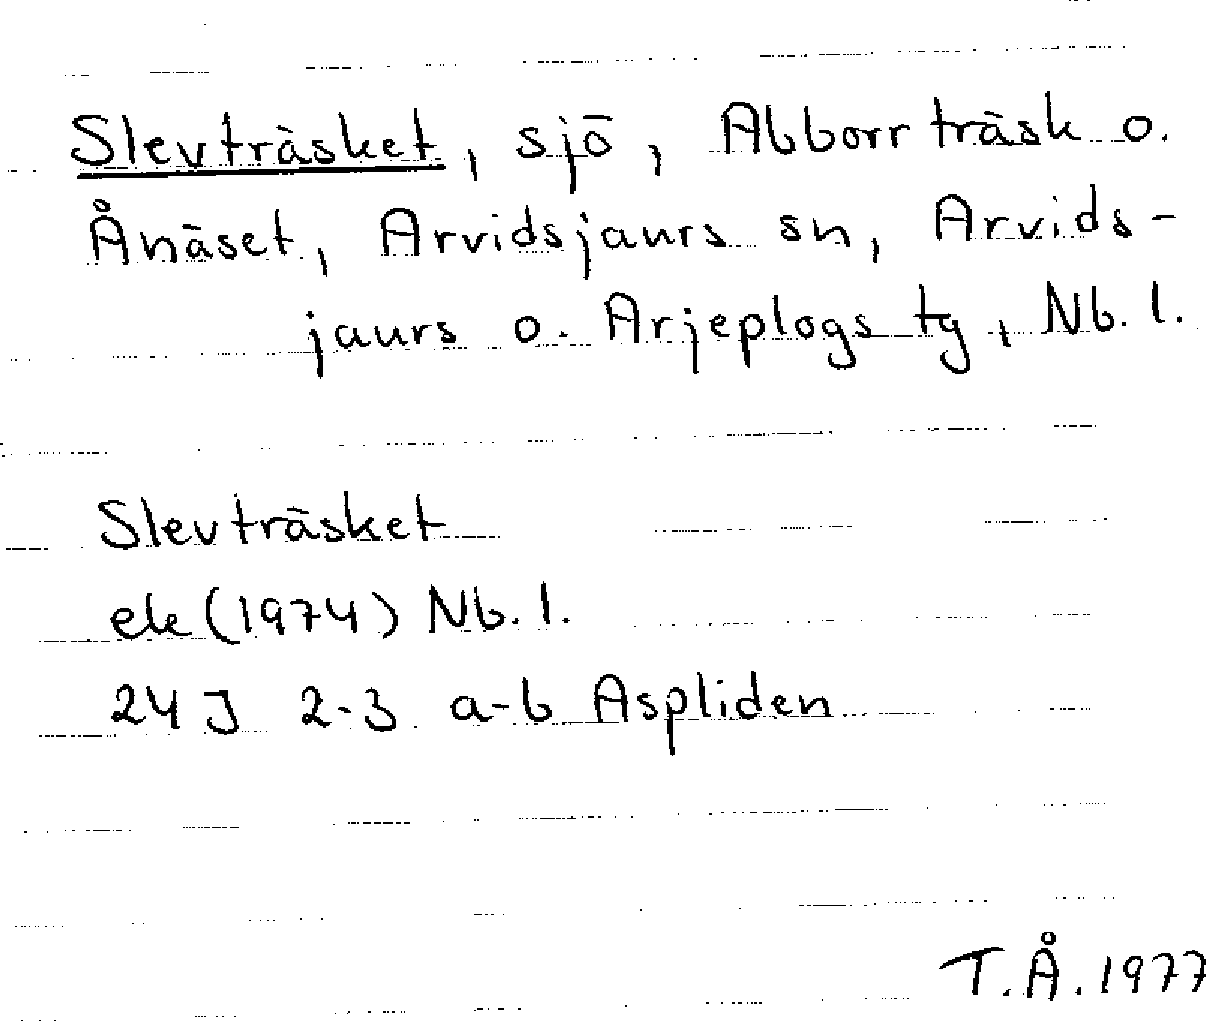 Slevträsket, sjö, Abborrträsk o.
Ånäset, Arvidsjaurs sn, Arvids-
jaurs o. Arjeplogs tg, Nb. l.
Slevträsket
ek (1974) Nb. l.
24 J 2-3 a-b Aspliden
T.Å. 1977